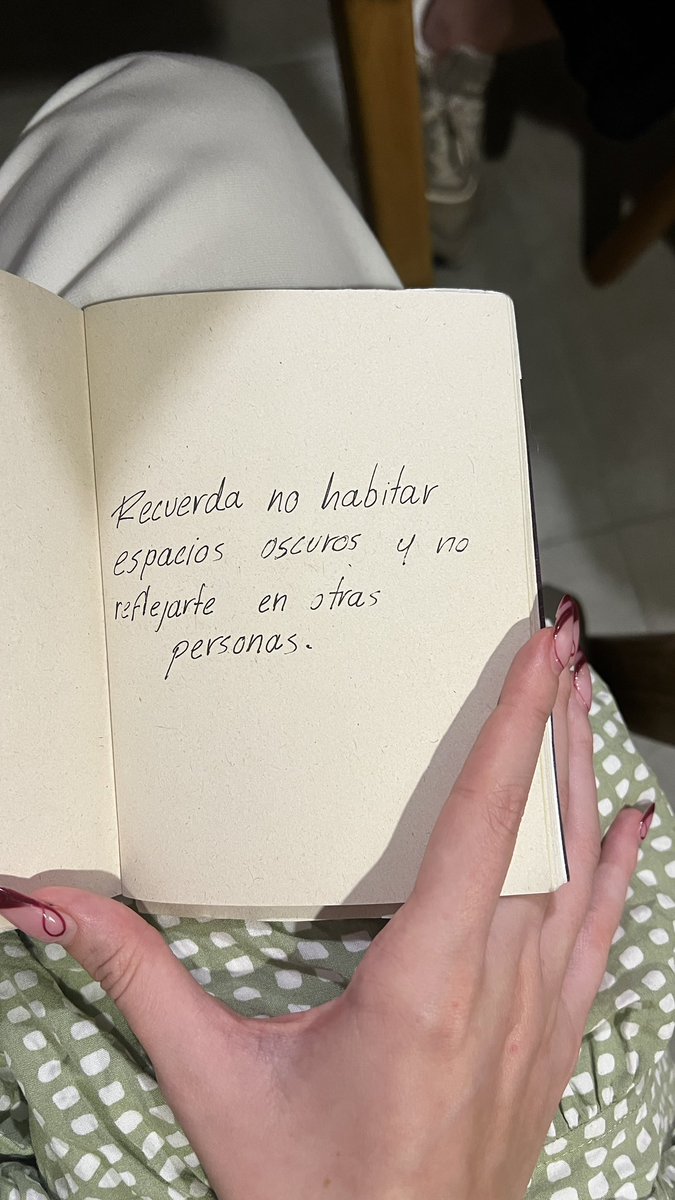 Recuerda no habitar
espacios oscuros y no
reflejarte en otras
personas.